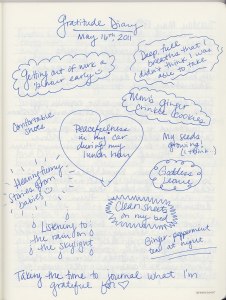 Gratitude Diary
May 16th 2011
Getting out of work a
½ hour early
Deep, full
breaths that I
didn't think I was
able to take
Mom's ginger
chinese cookies
Comfortable
shoes
Peacefulness
in my car
during my
lunch hour
My seeds
growing!
(I think..)
Goddess
Leonie
Hearing funny
stories from
babies
Clean sheets
on my bed
Listening to
the rain on
the skylight
Ginger peppermint
tea at night
Taking the time to journal what I'm
grateful for